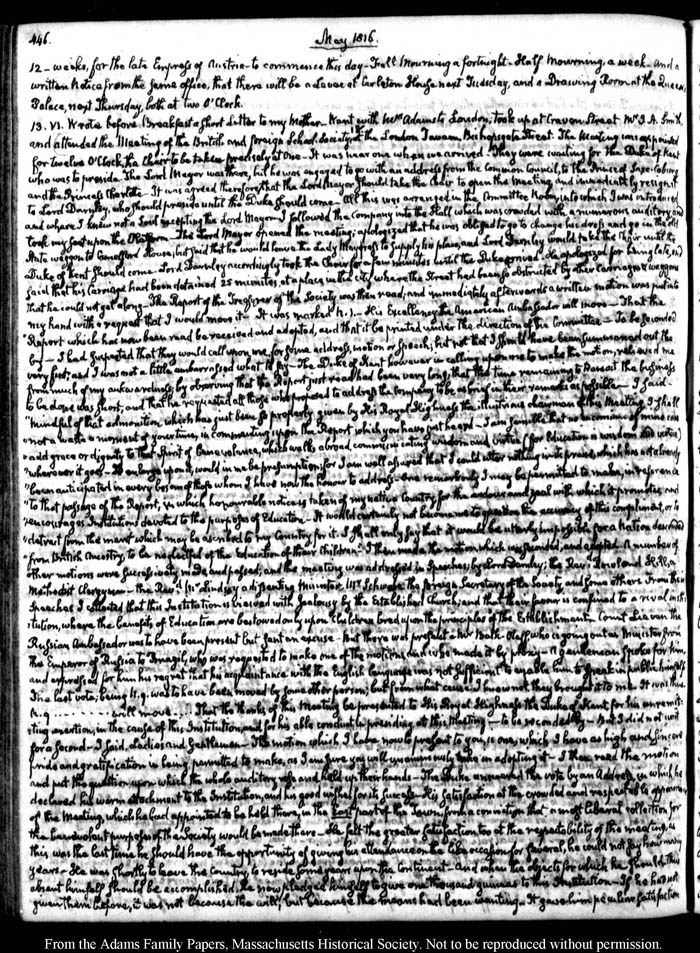 446.
May 1816.
12 - weeks, for the late Empress of Austria - to commence this day - Full Mourning a fortnight - Half Mourning, a week - and a
written Notice from the same office, that there will be a Levee at Carleton House next Tuesday, and a Drawing Room at the Queen's
Palace, next Thursday, both at two O'Clock.
13. VI. Wrote before Breakfast a Short Letter to my Mother. Went with Mrs Adams to London, took up at Craven Street Mr J. A. Smith
and attended the Meeting of the British and foreign School Society at the London Tavern Bishopsgate Street. The Meeting was appointed
for twelve O'Clock, the Chair to be taken precisely at One - It was near one when we arrived. They were waiting for the Duke of Kent
who was to preside. The Lord Mayor was there, but he was engaged to go with an address from the Common Council, to the Prince of Saxe-Coburg
and the Princess Charlotte - It was agreed therefore, that the Lord Mayor should take the Chair to open the Meeting and immediately resign it
to Lord Darnley, who should preside until the Duke should come. All this was arranged in the Committee Room, into which I was introduced
and where I knew not a Soul excepting the Lord Mayor - I followed the Company into the Hall which was crowded with a numerous auditory and
took my seat upon the Platform - The Lord Mayor opened the meeting; apologized that he was obliged to go to change his dress and go in the
State waggon to House, but said that he would leave the Lady Mayoress to supply his place, and Lord Darnley would take the Chair until the
Duke of Kent should come. Lord Darnley accordingly took the Chair for a few minutes until the Duke arrived. He apologized for being late, and
said that his Carriage had been detained 25 minutes, at a place in the City where the Street had been so obstructed by other Carriages & waggons
that he could not get along. The Report of the Treasurer of the Society was then read; and immediately afterwards a written motion was put into
my hand with a request that I would move it - It was marked N. 1. - His Excellency the American Ambassador will move - That the
"Report which has now been read be received and adopted, and that it be printed under the direction of the Committee - To be seconded
by - I had suspected that they would call upon me, for some address, motion or Speech; but not that I should have been summoned out the
very first; and I was not a little embarrassed what to say - The Duke of Kent however in calling upon me to make the motion, relieved me
from much of my awkwardness, by observing that the Report just read had been very long, that the time remaining to transact the business
to be done was short, and that he requested all those who proposed to address the Company to be as brief in their remarks as possible - I said.
"Mindful of that admonition, which has just been so properly given by His Royal Highness the illustrious chairman of this Meeting, I shall
"not waste a moment of your time, in commenting upon the Report which you have just heard - I am sensible that no encomium of mine can
"add grace or dignity to that Spirit of benevolence, which walks abroad, communicating wisdom and virtue (for Education is wisdom and virtue)
"wherever it goes - To enlarge upon it, would in me be presumption; for I am well assured that I could utter nothing in its praise, which has not already
"been anticipated in every bosom of those whom I have now the honour to address. One remark only I may be permitted to make, in reference
"to that passage of the Report, in which honourable notice is taken of my native Country, for the ardour and zeal with which it promotes and
"encourages Institutions devoted to the purposes of Education - It would certainly not become me to question the accuracy of this compliment, or to
"detract from the merit which may be ascribed to my Country for it. I shall only say that it would be utterly impossible for a Nation descended
"from British Ancestry, to be neglectful of the Education of their Children." I then made the motion which was seconded, and adopted. A number of
other motions were successively made and passed; and the meeting was addressed in Speeches, by Lord Darnley; the Revd Rowland Hill, a
Methodist Clergyman - the Revd Mr Lindsay a dissenting Minister, Mr Schwabe the foreign Secretary of the Society and some others. From their
Speeches I collected that this Institution is viewed with Jealousy by the Established Church; and that their favour is confined to a rival insti-
tution, where the benefits of Education are bestowed only upon Children bred upon the principles of the Establishment. Count Lieven the
Russian Ambassador was to have been present but sent an excuse - But there was present a Mr Balk-Poleff, who is going out as Minister from
the Emperor of Russia to Brazil, who was requested to make one of the motions, and who made it by proxy - A gentleman spoke for him,
and expressed for him his regret that his acquaintance with the English language was not sufficient to enable him to Speak in public himself.
The last vote, being N. 9. was to have been moved by some other person; but from what cause I know not they brought it to me. It was thus
N. 9 . . . . . . . . will move . . . That the thanks of this Meeting be presented to His Royal Highness the Duke of Kent for his unremit-
ting exertion, in the cause of this Institution, and for his able conduct in presiding at this Meeting - to be seconded by - But I did not wait
for a Second - I said, Ladies and Gentlemen - The motion which I have now to present to you, is one, which I have as high and sincere
pride and gratification in being permitted to make, as I am sure you will unanimously take in adopting it - I then read the motion
and put the question upon which the whole auditory rose and held up their hands - The Duke answered the vote by an Address, in which he
declared his warm attachment to the Institution, and his good wishes for its success - His satisfaction at the crowded and respectable appearance
of the Meeting, which he had appointed to be held there, in the East part of the Town from a conviction that a most liberal collection for
the benevolent purposes of the Society would be made there - He felt the greater satisfaction too at the respectability of the meeting, as
this was the last time he should have the opportunity of giving his attendance on a like occasion for several, he could not say how many
years - He was shortly to leave the Country, to reside some years upon the Continent - And when the objects for which he should thus
absent himself should be accomplished, he now pledged himself to give one thousand guineas to this Institution - If he had not
given them before, it was not because the will, but because the means had been wanting. It gave him peculiar satisfaction
From the Adams Family Papers, Massachusetts Historical Society. Not to be reproduced without permission.